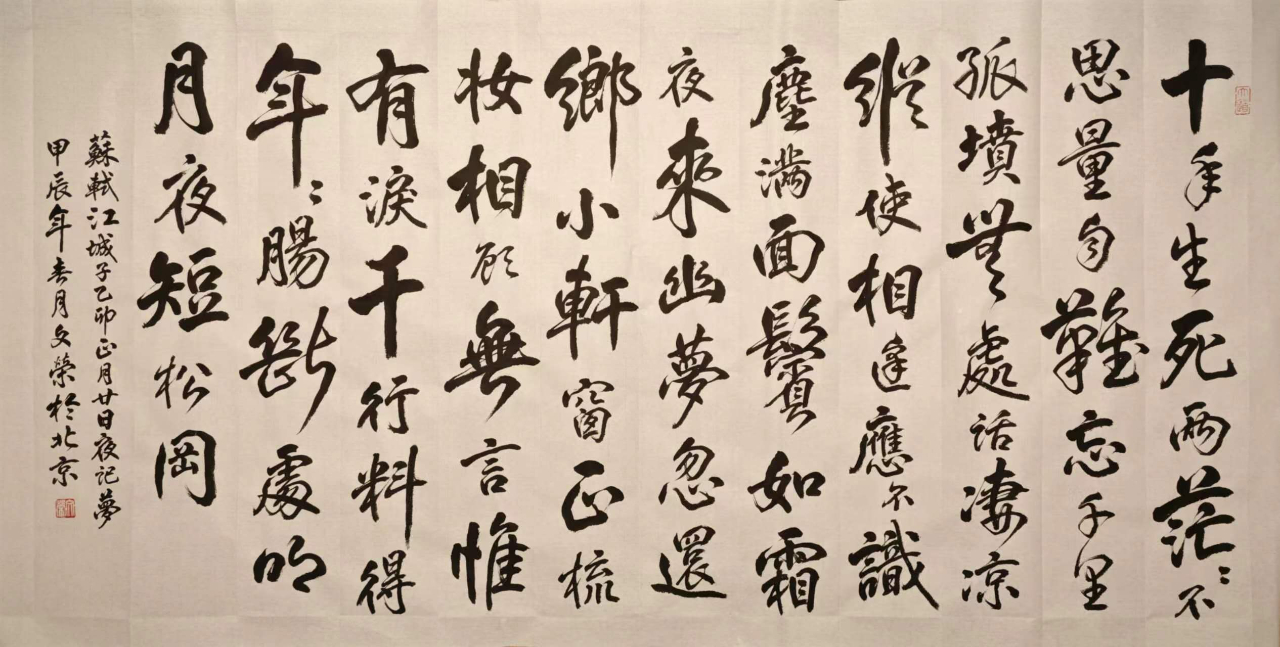 十年生死兩茫〻不
思量自難忘千里
孤墳無處話凄涼
縱使相逢應不識
塵滿面鬢如霜
夜來幽夢忽還
鄉小軒窗正梳
妝相顧無言惟
有淚千行料得
年〻腸斷處明
月夜短松岡
蘇軾江城子乙卯正月廿日夜記夢
甲辰年春月文榮於北京